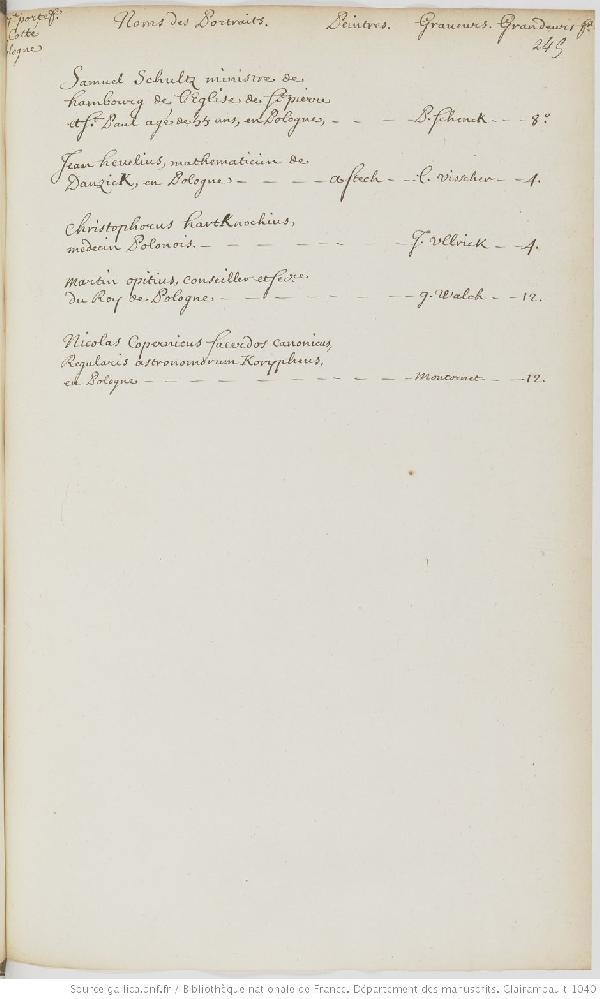 portef.
Cotté
Noms des Portraits. Peintres. Graveurs. Grandeurs
245
Samuel Schultz ministre de
hambourg de l'Eglise de St pierre
et St Paul agé de 55 ans, en Pologne, - - - P. Schenck - - 8°
Jean hevelius, mathematicien de
Danzick, en Pologne - - - - a stech - - l. visscher - 4.
Christophorus hartKnochius,
médecin Polonois. - - - - - - J. Vllrick - - 4.
martin opitius, Conseiller et secre.
du Roy de Pologne - - - - - - g. Walch - - 12.
Nicolas Copernicus sacerdos canonicus,
Regularis astronomorum Koryphius,
en Pologne - - - - - - - - Montcornet - - 12.
Source gallica.bnf.fr / Bibliothèque nationale de France. Département des manuscrits. Clairambault 1040